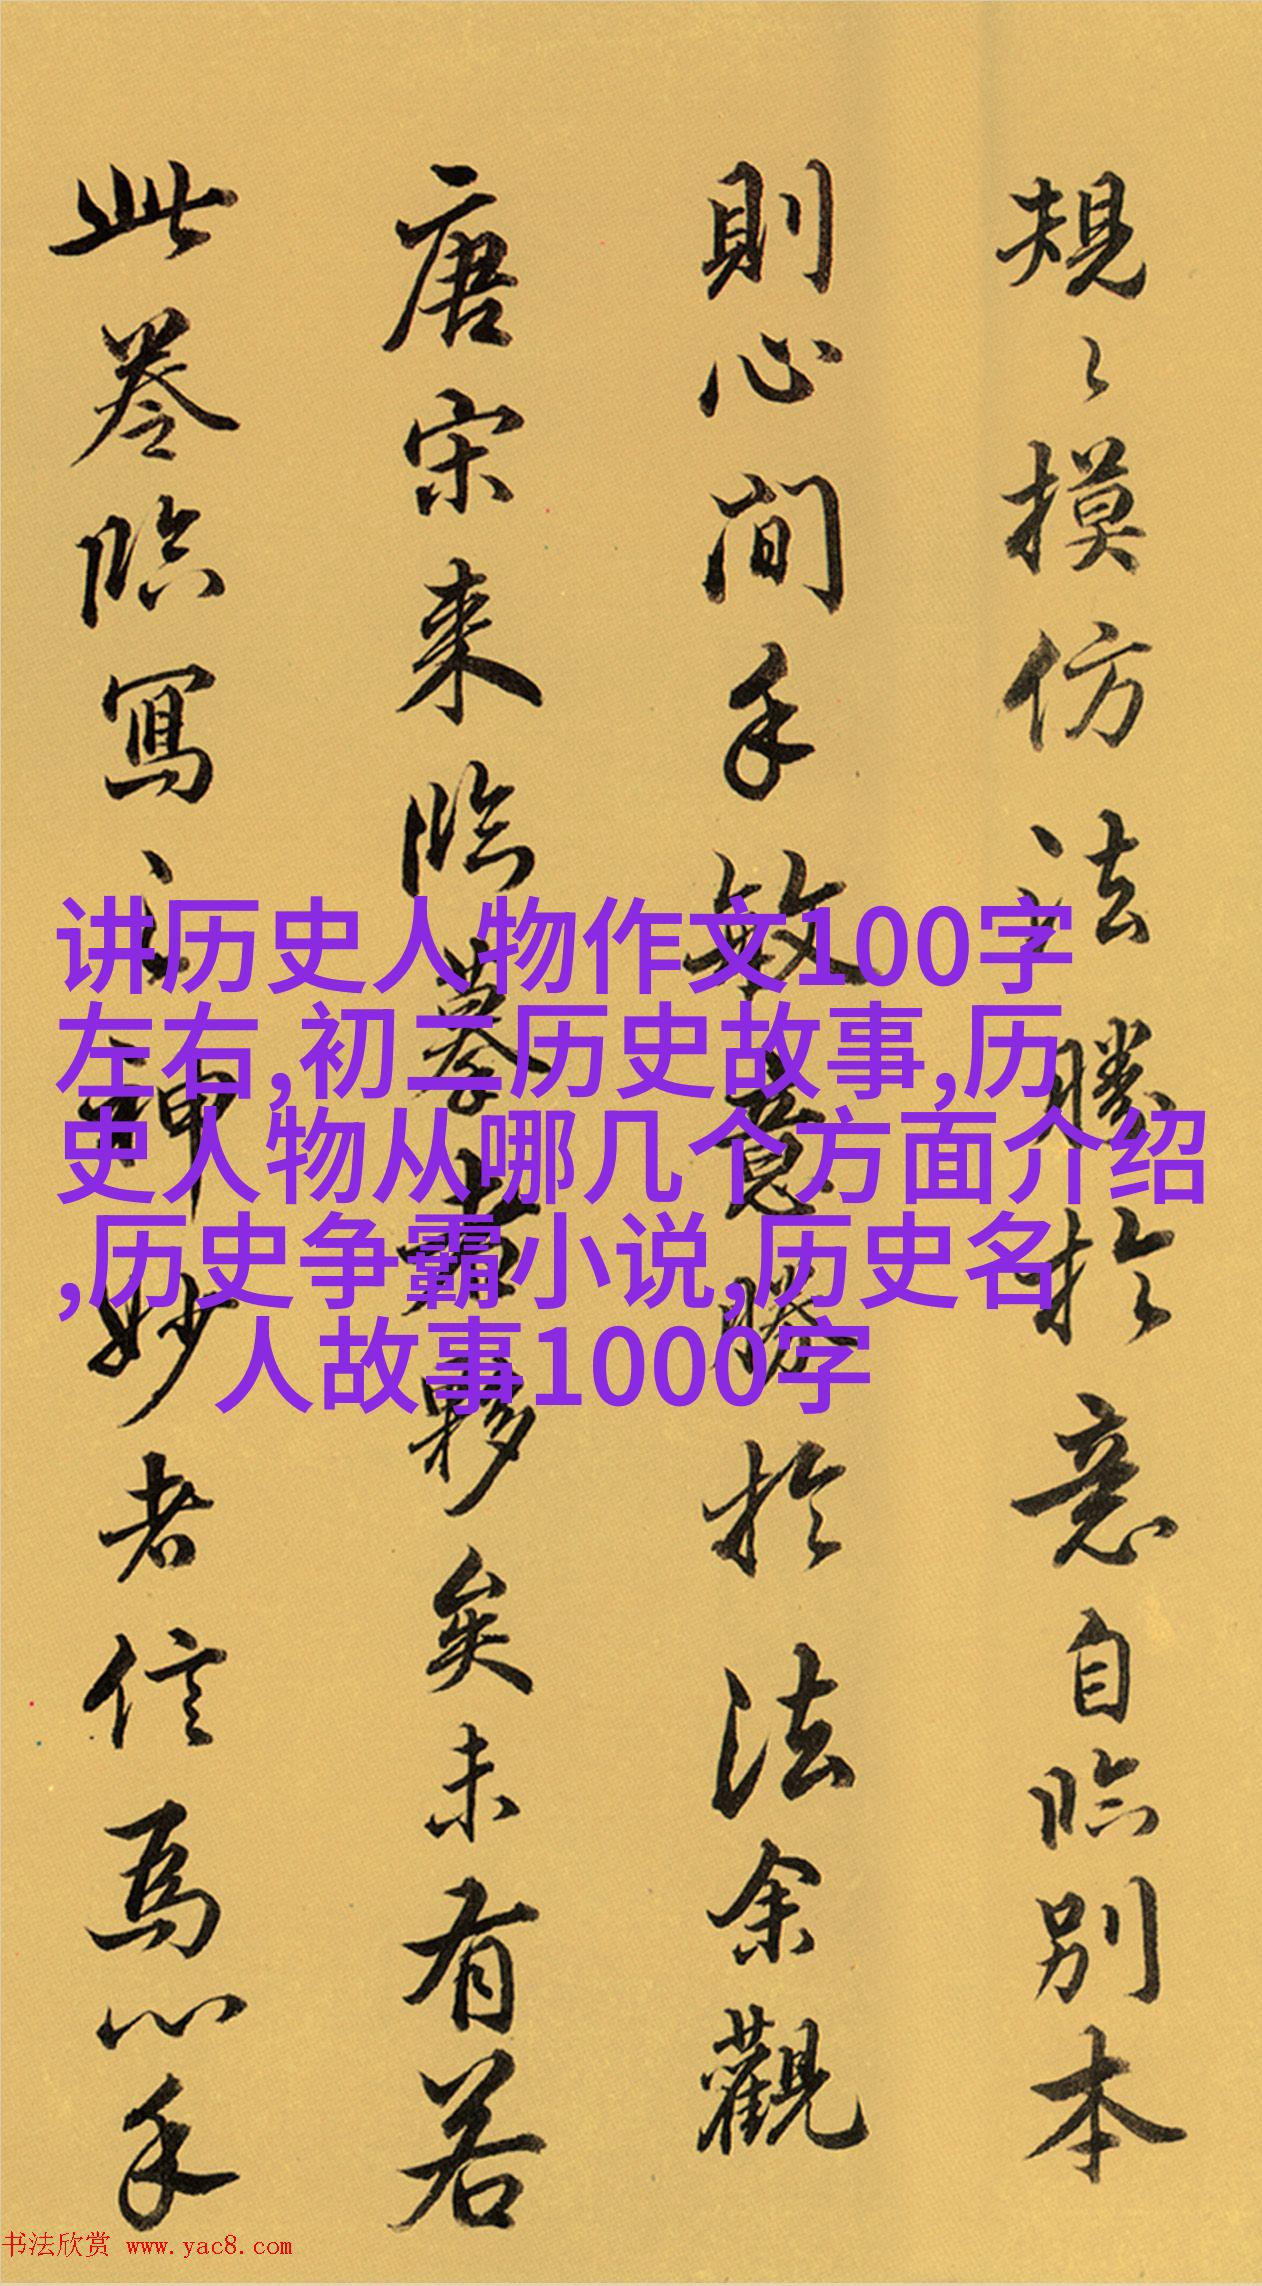 規〻摸仿法勝於意自臨別本
則心閒手敏意勝於法余觀
唐宋來臨摹者夥矣未有若
此卷臨寫之神妙者信焉心手
讲历史人物作文100字
左右,初二历史故事,历
史人物从哪几个方面介绍
,历史争霸小说,历史名
人故事1000字
书法欣赏 www.yac8.com